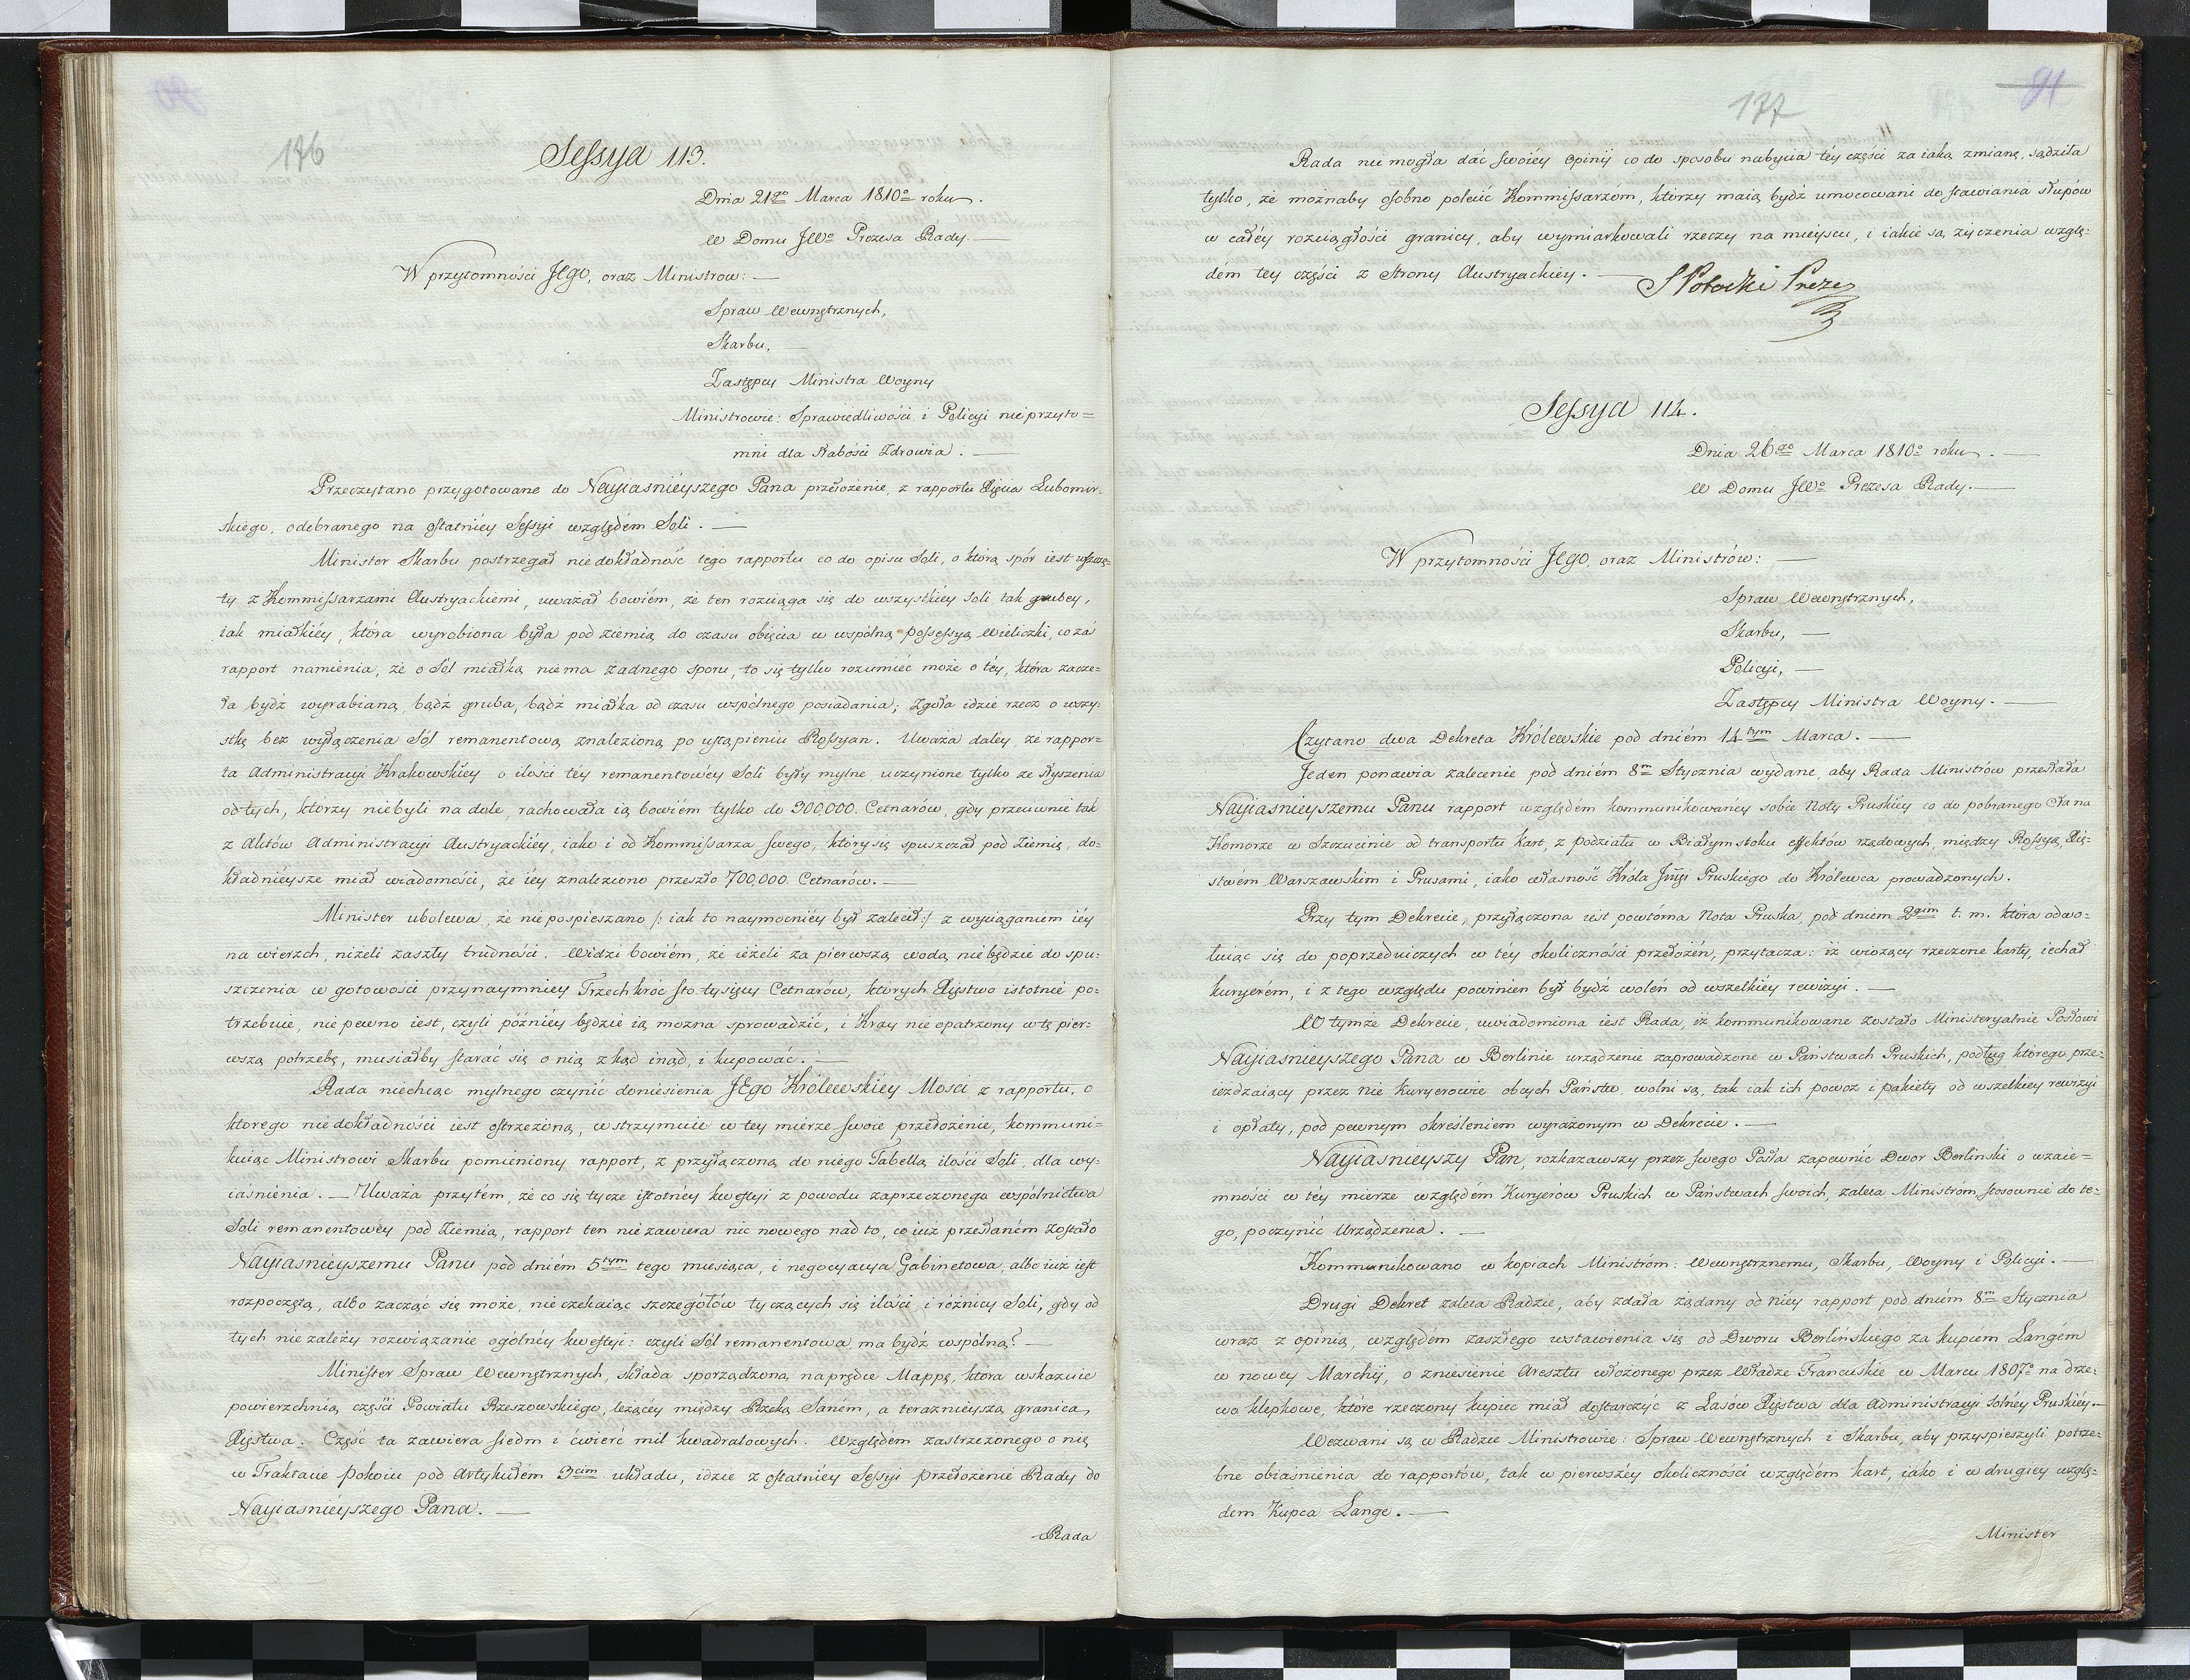 176
Sessya 113.
Dnia 21go Marca 1810o roku.
W Domu JWo Prezesa Rady. —
W przytomności Jego, oraz Ministrow: —
Spraw Wewnętrznych,
Skarbu, —
Zastępcy Ministra Woyny
Ministrowie: Sprawiedliwości i Policyi nieprzyto=
mni dla słabości Zdrowia. —
Przeczytano przygotowane do Nayiaśnieyszego Pana przełożenie, z rapportu Xięcia Lubomir=
skiego, odebranego na ostatniéy Sessyi względém Soli. —
Minister Skarbu postrzegał niedokładność tego rapportu co do opisu Soli, o którą spór iest wszczę=
ty z Kommissarzami Austryackiemi, uważał bowiém, że ten rozciąga się do wszystkiéy Soli tak grubey,
iak miałkiéy, która wyrobiona była pod ziemią do czasu obięcia w wspólną possessyą Wieliczki, co zaś
rapport namienia, że o Sól miałką niema żadnego sporu, to się tylko rozumieć może o téy, która zaczę=
ła bydź wyrabianą, bądź gruba, bądź miałka od czasu wspólnego posiadania; Zgoła idzie rzecz o wszy=
stkę bez wyłączenia Sól remanentową znalezioną po ustąpieniu Rossyan. Uważa daley, że rappor=
ta Administracyi Krakowskiéy o ilości téy remanentowéy Soli były mylne, uczynione tylko ze słyszenia
od tych, którzy niebyli na dole, rachowała ią bowiém tylko do 300,000. Cetnarów, gdy przeciwnie tak
z Aktów Administracyi Austryackiéy, iako i od Kommissarza swego, który się spuszczał pod Ziemię, do=
kładnieysze miał wiadomości, że iéy znaleziono przeszło 700,000. Cetnarów. —
Minister ubolewa, że niepospieszano /: iak to naymocniéy był zalecił :/ z wyciąganiem iéy
na wierzch, niżeli zaszły trudności. Widzi bowiém, że ieżeli za pierwszą wodą niebędzie do spu=
szczenia w gotowości przynaymniey Trzechkroć sto tysięcy Cetnarów, których Xięstwo istotnie po=
trzebuie, nie pewno iest, czyli późniéy będzie ią można sprowadzić, i Kray nieopatrzony w tę pier=
wszą potrzebę, musiałby starać się o nią zkąd inąd, i kupować. —
Rada niechcąc mylnego czynić doniesienia JEgo Królewskiéy Mości z rapportu, o
ktorego niedokładności iest ostrzeżoną, wstrzymuie w tey mierze swoie przełożenie, kommuni=
kuiąc Ministrowi Skarbu pomieniony rapport, z przyłączoną do niego Tabellą ilości Soli, dla wy=
iaśnienia. — Uważa przytém, że co się tycze istotnéy kwestyi z powodu zaprzeczonego wspólnictwa
Soli remanentowéy pod Ziemią, rapport ten niezawiera nic nowego nad to, co iuż przesłaném zostało
Nayiaśnieyszemu Panu pod dniém 5tym tego miesiąca, i negocyacya Gabinetowa, albo iuż iest
rozpoczętą, albo zacząć się może, nieczekaiąc szczegółów tyczących się ilości i różnicy Soli, gdy od
tych nie zależy rozwiązanie ogólnéy kwestyi: czyli Sól remanentowa ma bydź wspólną? —
Minister Spraw Wewnętrznych, składa sporządzoną naprędce Mappę, która wskazuie
powierzchnią części Powiatu Rzeszowskiego, leżącey między Rzeką Saném, a teraźnieyszą granicą
Xięstwa. Część ta zawiera siedm i ćwierć mil kwadratowych. Względem zastrzeżonego o nię
w Traktacie pokoiu pod Artykułém 3cim układu, idzie z ostatniey Sessyi przełożenie Rady do
Nayiaśnieyszego Pana. —
Rada
177
91
Rada nie mogła dać swoiéy opinij co do sposobu nabycia téy części za iaką zmianę, sądziła
tylko, że możnaby osobno polecić Kommissarzóm, którzy maią bydź umocowani do stawiania słupów
w całéy rozciągłości granicy, aby wymiarkowali rzeczy na mieyscu, i iakie są życzenia wzglę=
dém tey części z Strony Austryackiéy. —
S Potocki Preze
Sessya 114.
Dnia 26go Marca 1810o roku. —
W Domu JWo Prezesa Rady. —
W przytomności JEgo, oraz Ministrów: —
Spraw Wewnętrznych,
Skarbu, —
Policyi, —
Zastępcy Ministra Woyny. —
Czytano dwa Dekreta Królewskie pod dniém 14tym Marca. —
Jeden ponawia zalecenie pod dniém 8m Stycznia wydane, aby Rada Ministrów przesłała
Nayiaśnieyszemu Panu rapport względém kommunikowanéy sobie Noty Pruskiéy co do pobranego Cła na
Komorze w Szczucinie od transportu kart, z podziału w Białymstoku effektów rządowych, między Rossyą, Xię=
stwém Warszawskim i Prusami, iako własność Króla Jmci Pruskiego do Królewca prowadzonych.
Przy tym Dekrecie, przyłączona iest powtórna Nota Pruska, pod dniem 2gim t. m. która odwo=
łuiąc się do poprzedniczych w téy okoliczności przełożén, przytacza: iż wiozący rzeczone karty, iechał
kuryerém, i z tego względu powinien był bydź wolen od wszelkiéy rewizyi. —
W tymże Dekrecie, uwiadomiona iest Rada, iż kommunikowane zostało Ministeryalnie Posłowi
Nayiaśnieyszego Pana w Berlinie urządzenie zaprowadzone w Państwach Pruskich, podług którego prze=
ieżdzaiący przez nie Kuryerowie obcych Państw, wolni są, tak iak ich powoz i pakiety od wszelkiey rewizyi
i opłaty, pod pewnym określeniem wyrażonym w Dekrecie. —
Nayiaśnieyszy Pan, rozkazawszy przez swego Posła zapewnić Dwor Berliński o wzaie=
mności w téy mierze względém Kuryerów Pruskich w Państwach swoich, zaleca Ministróm stosownie do te=
go, poczynić Urządzenia. —
Kommunikowano w kopiach Ministróm: Wewnętrznemu, Skarbu, Woyny i Policyi. —
Drugi Dekret zaleca Radzie, aby zdała żądany od niey rapport pod dniém 8m Stycznia
wraz z opinią, względém zaszłego wstawienia się od Dworu Berlińskiego za kupcém Langém
w nowey Marchij, o zniesienie Aresztu włożonego przez Władze Francuskie w Marcu 1807o na drze=
wo klepkowe, które rzeczony kupiec miał dostarczyć z Lasów Xięstwa dla Administracyi Solnéy Pruskiéy. —
Wezwani są w Radzie Ministrowie: Spraw Wewnętrznych i Skarbu, aby przyspieszyli potrze=
bne obiaśnienia do rapportów, tak w pierwszéy okoliczności względém kart, iako i w drugiey wzglę=
dem Kupca Lange. —
Minister